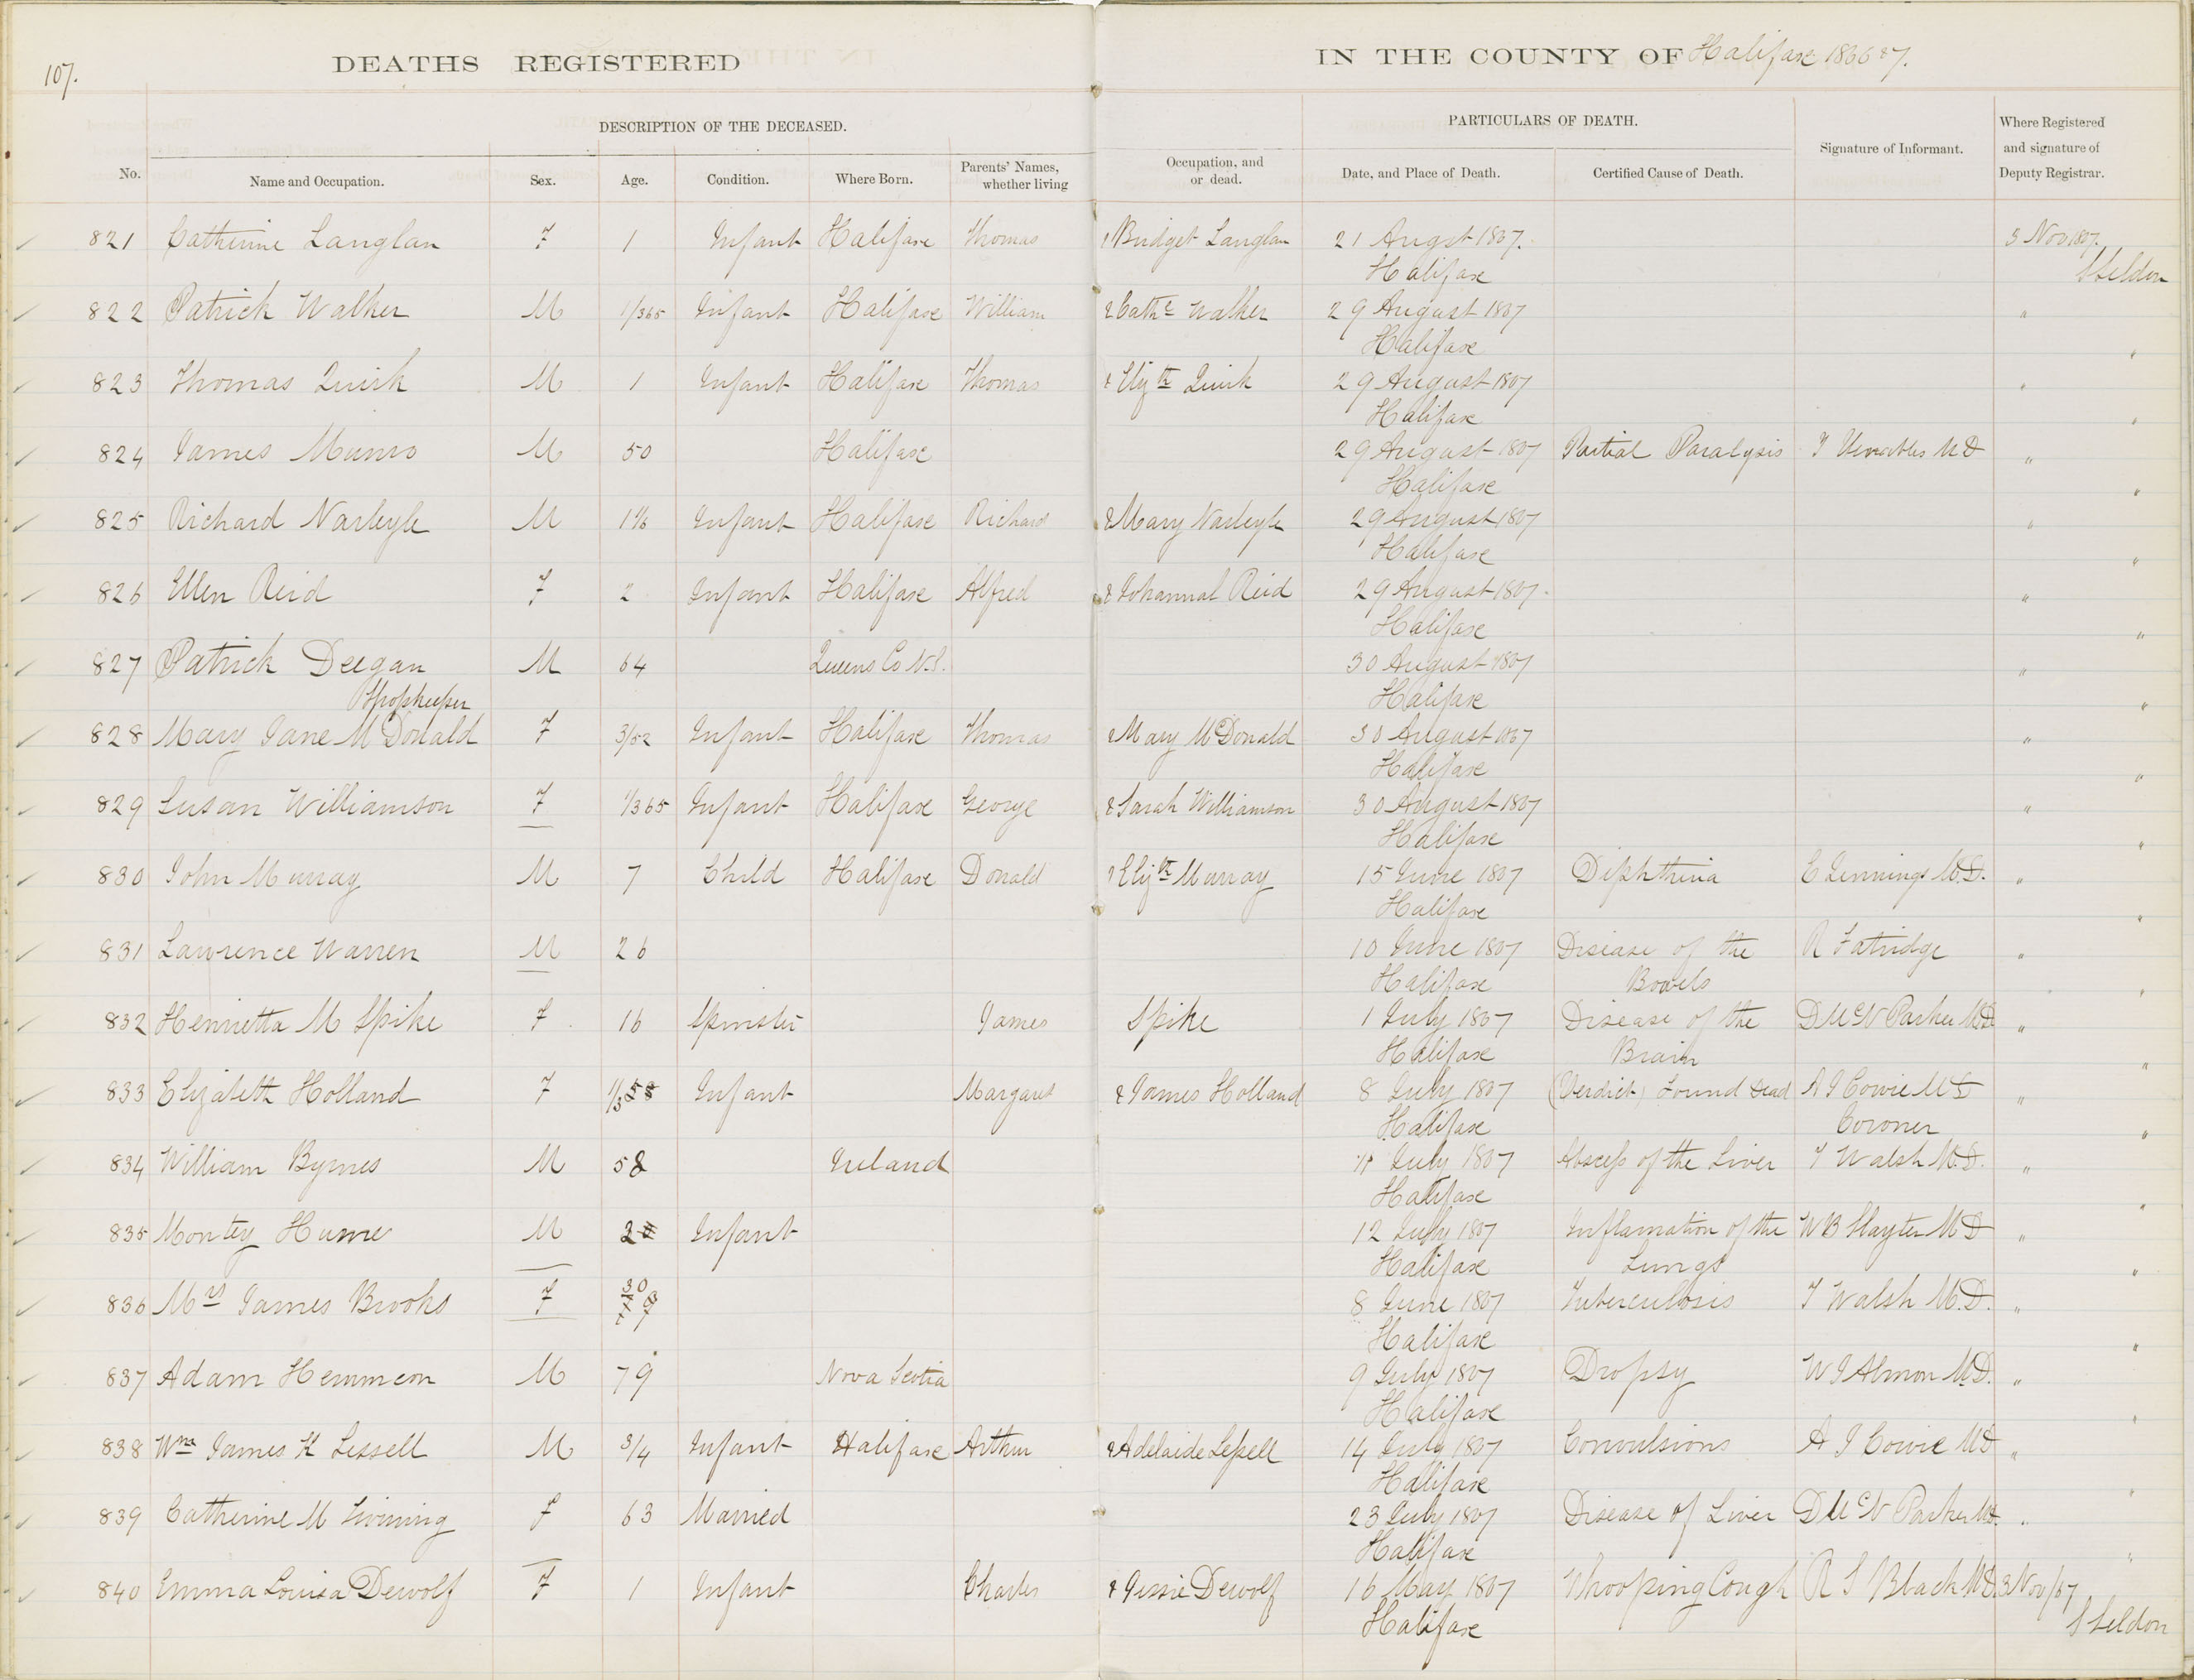 107.
DEATHS REGISTERED IN THE COUNTY OF Halifax 1866 & 7.
DESCRIPTION OF THE DECEASED. PARTICULARS OF DEATH.
No. Name and Occupation. Sex. Age. Condition. Where Born. Parents' Names, whether living Occupation, and or dead. Date, and Place of Death. Certified Cause of Death. Signature of Informant. Where Registered and signature of Deputy Registrar.
821 Catherine Langlan F 1 Infant Halifax Thomas & Bridget Langlan 21 Augst 1867. 3 Nov 1867.
Halifax S Seldon
822 Patrick Walker M 1/365 Infant Halifax William & Cathe Walker 29 August 1867 "
Halifax "
823 Thomas Quirk M 1 Infant Halifax Thomas & Elizth Quirk 29 August 1867 "
Halifax "
824 James Munro M 50 Halifax 29 August 1867 Partial Paralysis T Venables MD "
Halifax "
825 Richard M Infant Halifax Richard & Mary 29 August 1867 "
Halifax "
826 Ellen Reid F 2 Infant Halifax Alfred & Johannah Reid 29 August 1867. "
Halifax "
827 Patrick Deegan M 64 Queens Co N.S. 30 August 1867 "
Shopkeeper Halifax "
828 Mary Jane McDonald F 3/52 Infant Halifax Thomas & Mary McDonald 30 August 1867 "
Halifax "
829 Susan Williamson F 1/365 Infant Halifax George & Sarah Williamson 30 August 1867 "
Halifax "
830 John Murray M 7 Child Halifax Donald & Elizth Murray 15 June 1867 Diphtheria E Jennings M.D. "
Halifax "
831 Lawrence Warren M 26 10 June 1867 Disease of the R Fatridge "
Halifax Bowels "
832 Henrietta M Spike F 16 Spinster James Spike 1 July 1867 Disease of the D McN Parker MD "
Halifax Brain "
833 Elizabeth Holland F Infant Margaret & James Holland 8 July 1867 (Verdict) Found Dead A J Cowie MD "
Halifax Coroner "
834 William Byrnes M 58 Ireland 11 July 1867 Abscess of the Liver T Walsh M.D. "
Halifax "
835 Montey Hume M 2 Infant 12 July 1867 Inflamation of the W B Slayter MD "
Halifax Lungs "
836 Mrs James Brooks F 30 8 June 1867 Tuberculosis T Walsh M.D. "
Halifax "
837 Adam Hemmeon M 79 Nova Scotia 9 July 1867 Dropsy W J Almon M.D. "
Halifax "
838 Wm James H Lessell M 3/4 Infant Halifax Arthur & Adelaide Lessell 14 July 1867 Convulsions A J Cowie MD "
Halifax "
839 Catherine M Twining F 63 Married 23 July 1867 Disease of Liver D McN Parker MD. "
Halifax "
840 Emma Louisa Dewolf F 1 Infant Charles & Jessie Dewolf 16 May 1867 Whooping Cough R S Black MD. 3 Nov/67
Halifax S Seldon